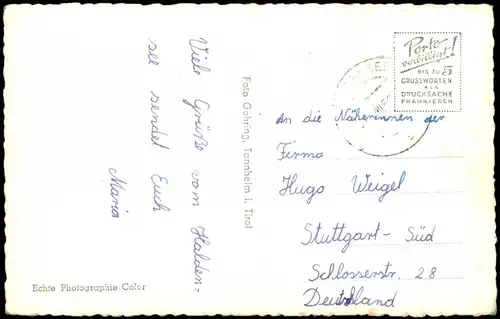 Viele Grüße vom Halden=
see sendet Euch
Maria
Echte Photographie Color
Foto Gehring, Tannheim i. Tirol
Porto
verbilligt!
BIS ZU 5
GRUSSWORTEN
ALS
DRUCKSACHE
FRANKIEREN
An die Näherinnen der
Firma
Hugo Weigel
Stuttgart-Süd
Schlosserstr. 28
Deutschland